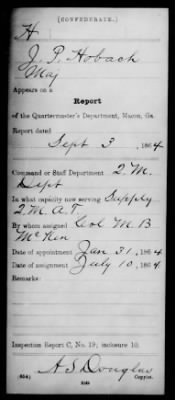 (CONFEDERATE.)
H
J. P. Hobach
Maj
Appears on a
Report
of the Quartermaster's Department, Macon, Ga.
Report dated
Sept 3, 1864
Command or Staff Department Q.M.
Dept
In what capacity now serving Supply
Q.M. A.T.
By whom assigned Col M B
McKin
Date of appointment Jan 31, 1864
Date of assignment July 10, 1864
Remarks:
Inspection Report C, No. 19; inclosure 10.
A S Douglas
Copyist.